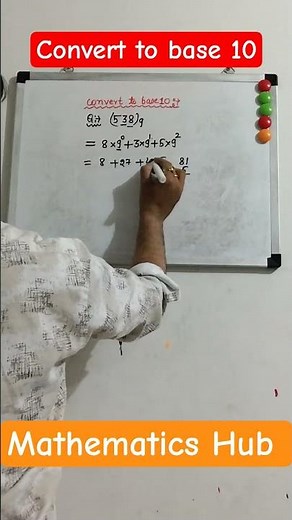 Convert to base 10
Convert to base 10 :-
Q:1: (538)₉
= 8 × 9⁰ + 3 × 9¹ + 5 × 9²
= 8 + 27 + 81
5
Mathematics Hub